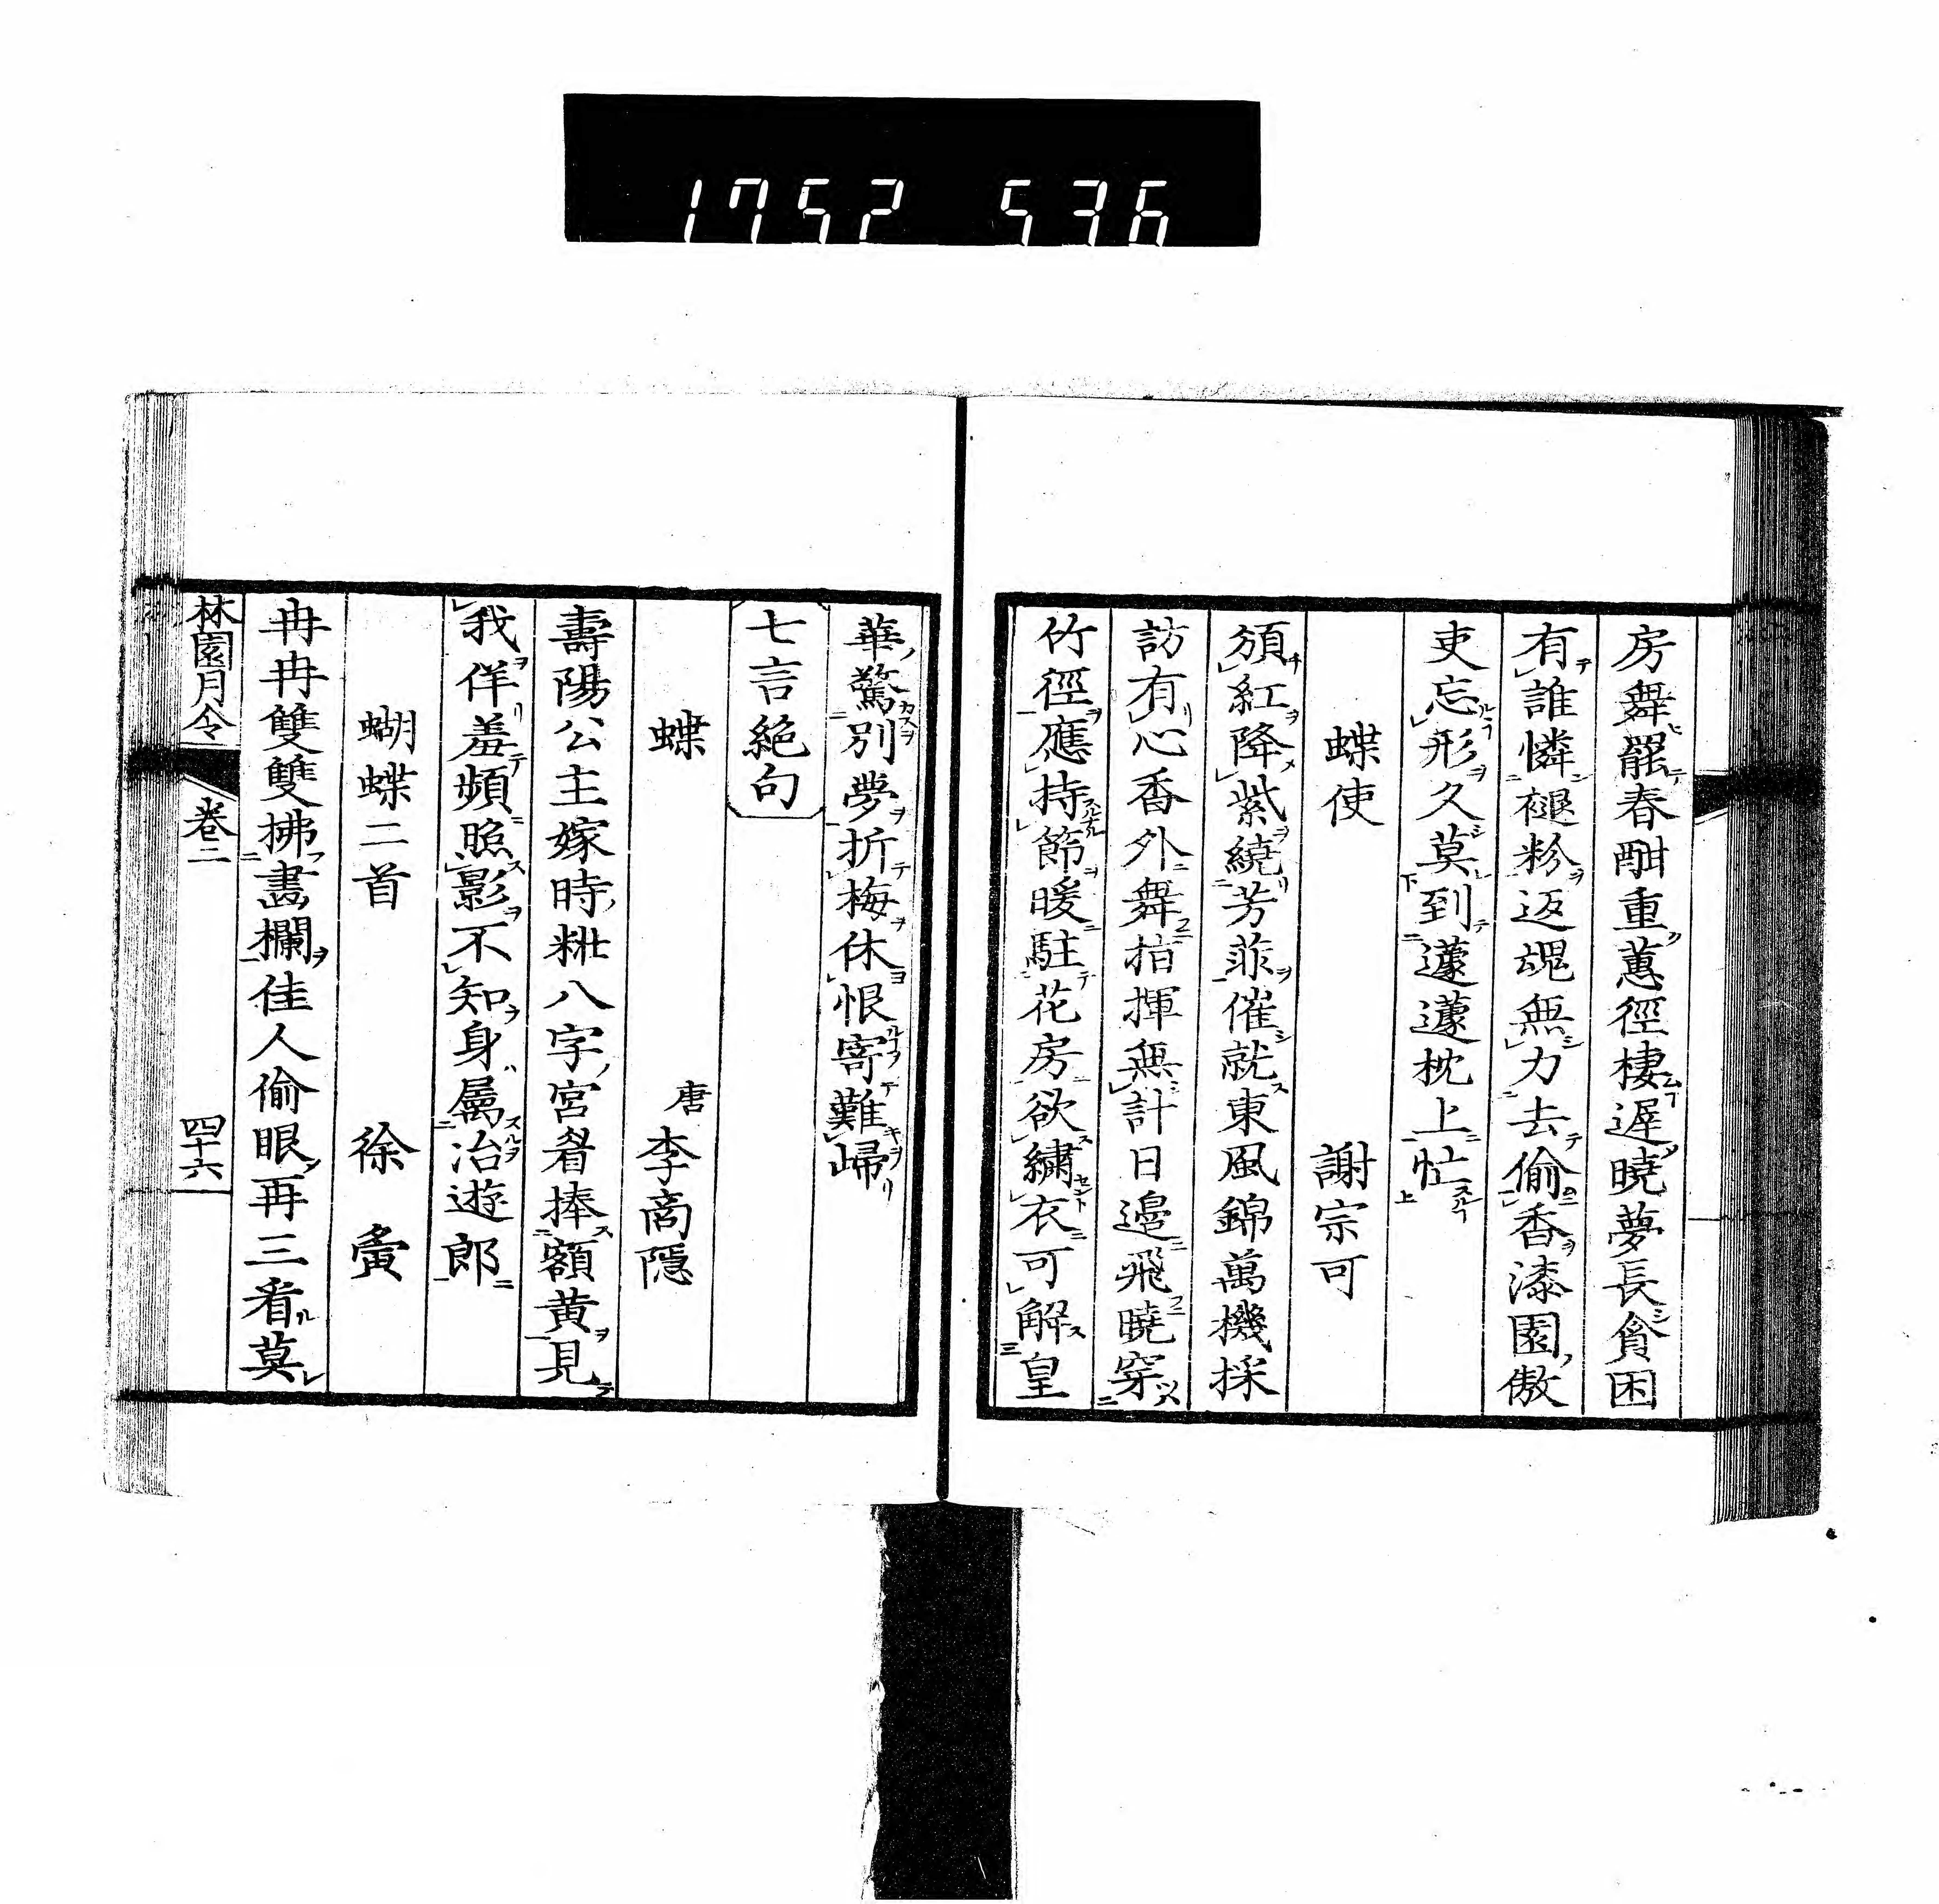 1752 536
房舞罷春酣重蕙徑棲遲曉夢長貧困
有誰憐褪粉返魂無力去偷香漆園傲
吏忘形久莫到蘧蘧枕上忙
蝶使 謝宗可
頒紅降紫繞芳菲催就東風錦萬機採
訪有心香外舞指揮無計日邊飛曉穿
竹徑應持節暖駐花房欲繡衣可解皇
華驚別夢折梅休恨寄難歸
七言絕句
蝶 唐 李商隱
壽陽公主嫁時粧八字宮眉捧額黃見
我佯羞頻照影不知身屬冶遊郎
蝴蝶二首 徐夤
冉冉雙雙拂畫欄佳人偷眼再三看莫
林園月令 卷二 四十六